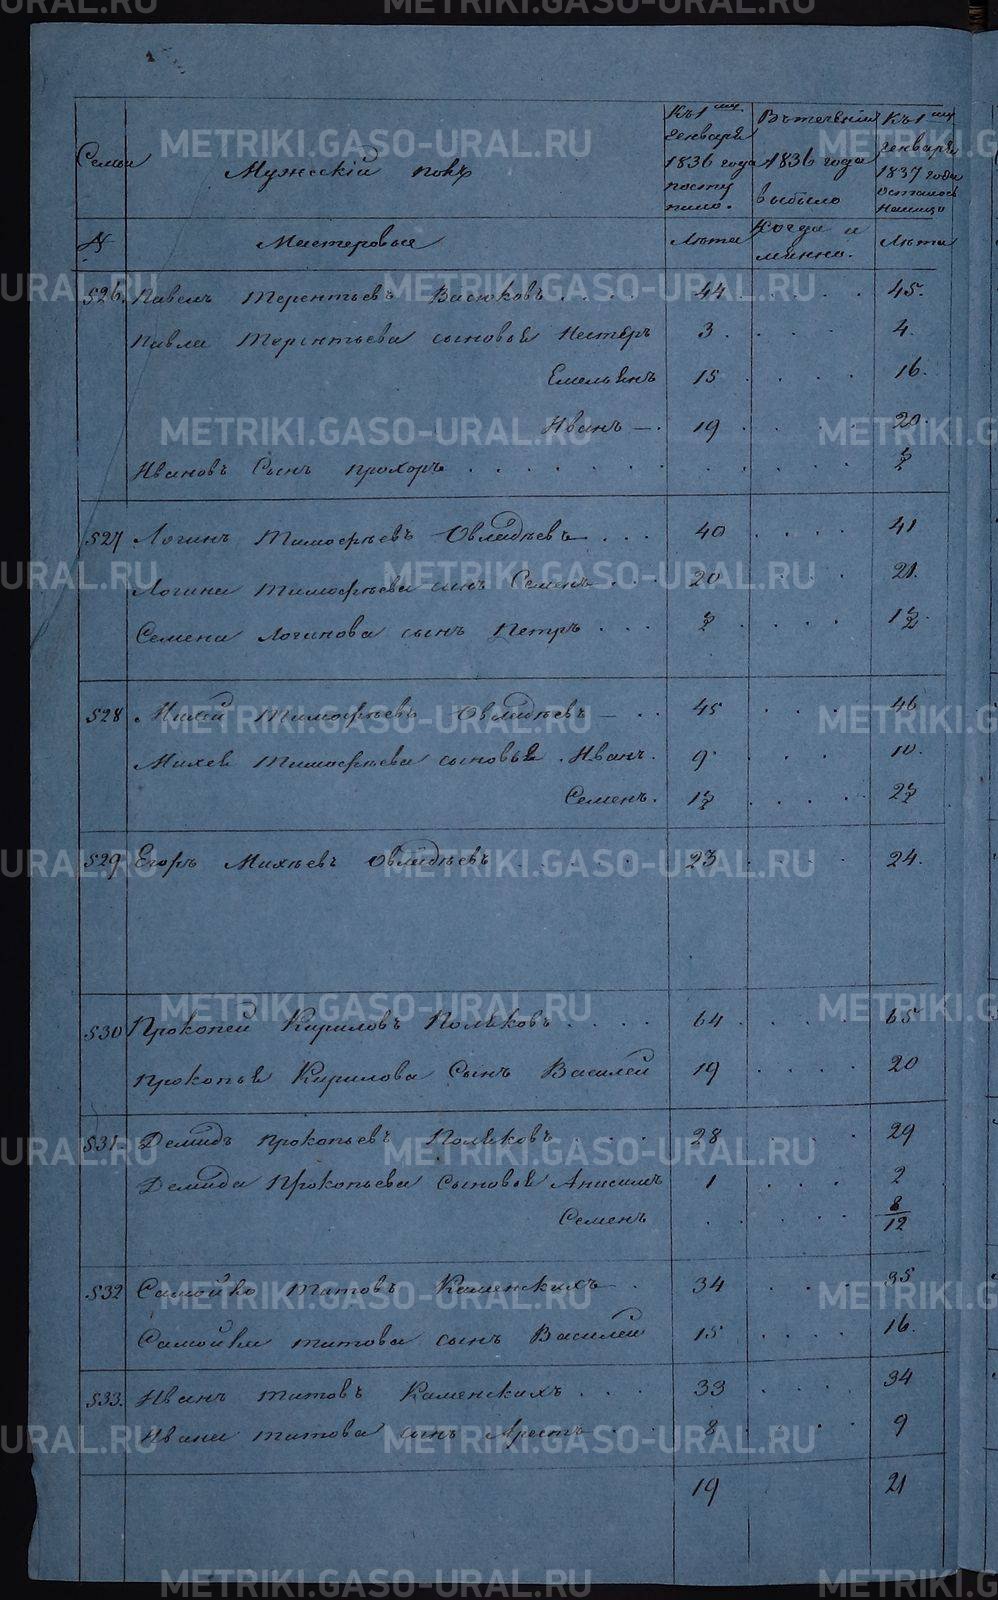 METRIKI.GASO-URAL.RU
Семьи
Мужескій полъ
Къ 1му генваря 1836 года посту пило.
Въ теченіи 1836 года выбыло
Къ 1му генваря 1837 года осталось налицо
№
Мастеровые
Лѣта
Когда и имянно.
Лѣта
526. Павелъ Терентьевъ Васюковъ . . . . 44 . . . . . 45.
Павла Терентьева сыновья Нестеръ 3 . . . . 4.
Емельянъ 15 . . . . 16.
Иванъ — . 19 . . . . 20.
Ивановъ Сынъ Прохоръ . . . . . . . . . . . ½
527 Логинъ Тимофѣевъ Овладѣевъ . . . 40 . . . . 41
Логина Тимофѣева сынъ Семенъ . . . 20 . . . 21.
Семена Логинова сынъ Петръ . . . ½ . . . . 1½.
528 Михей Тимофѣевъ Овладѣевъ — . . 45 . . . . 46
Михея Тимофѣева сыновья . Иванъ . 9 . . . . 10.
Семенъ . 1½ . . . . 2½
529 Егоръ Михѣевъ Овладѣевъ . . . . 23 . . . . 24.
530 Прокопей Кириловъ Поляковъ . . . . 64 . . . . 65
Прокопья Кирилова Сынъ Василей 19 . . . . 20
531. Демидъ Прокопьевъ Поляковъ . . . . 28 . . . . 29
Демида Прокопьева Сыновья Анисимъ 1 . . . . 2
Семенъ . . . . . 8/12
532 Самойло Титовъ Каменскихъ . 34 . . . . 35
Самойла Титова сынъ Василей 15 . . . . 16.
533. Иванъ Титовъ Каменскихъ . . . 33 . . . . 34
Ивана Титова сынъ . . 8 . . . . 9
19 21